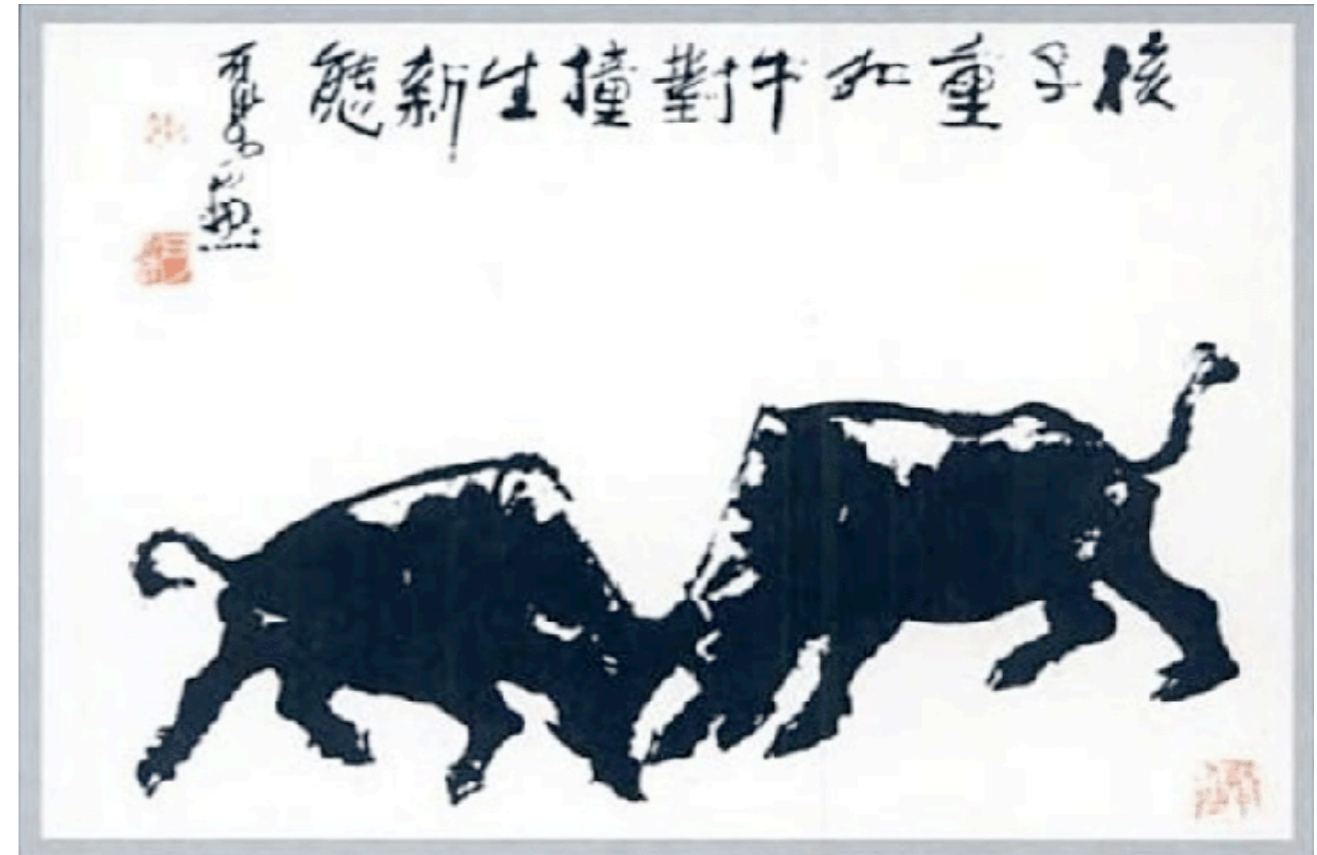 核子重如牛對撞生新態
可染畫